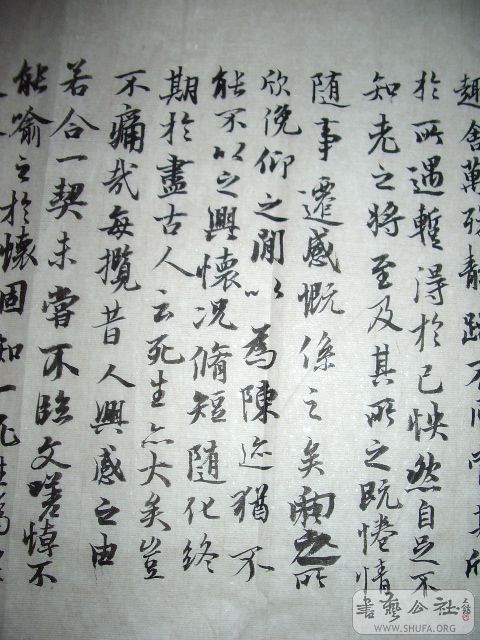 趣舍萬殊静躁不同當其欣
於所遇蹔得於己怏然自足不
知老之將至及其所之既惓情
随事遷感慨係之矣向之所
欣俛仰之間以為陳迹猶不
能不以之興懷况脩短随化終
期於盡古人云死生亦大矣豈
不痛哉每攬昔人興感之由
若合一契未嘗不臨文嗟悼不
能喻之於懷固知一死生為
書藝公社
WWW.SHUFA.ORG